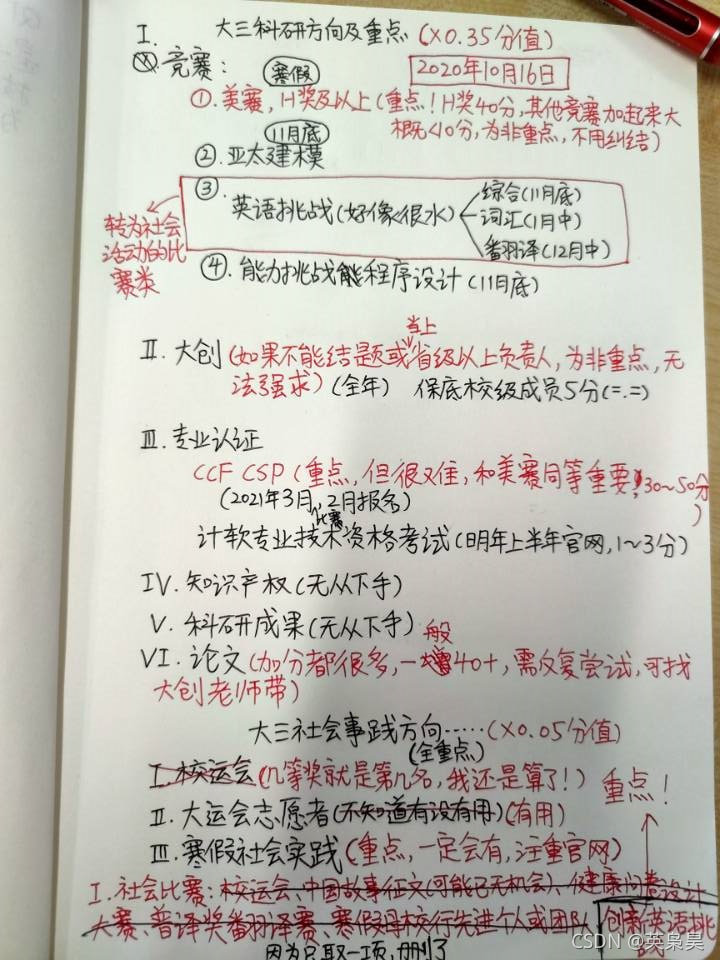 I. 大三科研方向及重点(X0.35分值)
竞赛: 寒假 2020年10月16日
①.美赛,H奖及以上(重点!H奖40分,其他竞赛加起来大
概<10分,为非重点,不用纠结)
11月底
②.亚太建模
③. 综合(11月底)
英语挑战(好像很水) 词汇(1月中)
翻译(12月中)
转为社会
活动的比
赛类
④.能力挑战 程序设计(11月底)
当上
II.大创(如果不能结题或省级以上负责人,为非重点,无
法强求)(全年) 保底校级成员5分(=.=)
III.专业认证
CCF CSP(重点,但很难,和美赛同等重要!30~50分
)
(2021年3月 ,2月报名)
比赛
计软专业技术资格考试(明年上半年官网,1~3分)
IV.知识产权(无从下手)
V.科研成果(无从下手)
般
VI.论文(加分都很多,一 40+,需反复尝试,可找
大创老师带)
大三社会事践方向……(X0.05分值)
(全重点)
I.校运会(几等奖就是第几名,我还是算了!) 重点!
II.大运会志愿者(不知道有没有用)(有用)
III.寒假社会实践(重点,一定会有,注重官网)
I.社会比赛:校运会、中国故事征文(可能已无机会)、健康问卷设计
大赛、普译奖翻译赛、寒假母校行先进个人或团队 创新英语挑
战
因为只取一项,删了
CSDN @英枭昊